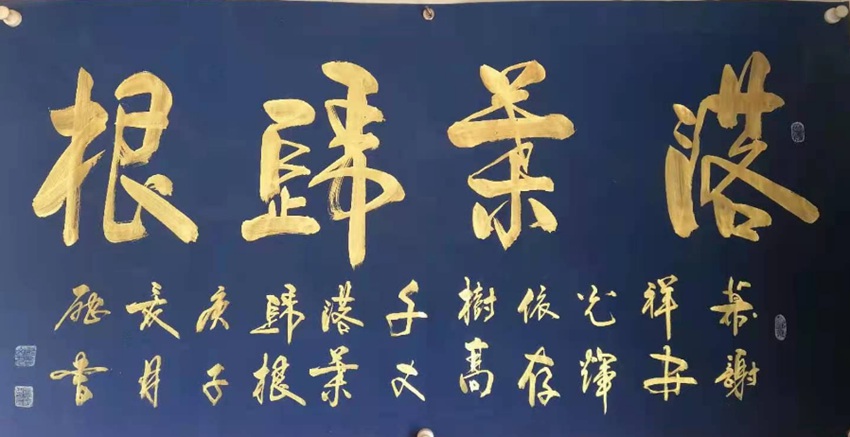 落葉歸根
謝
祥
光輝
依存
樹高
千丈
落葉
歸根
庚子
亥月
書